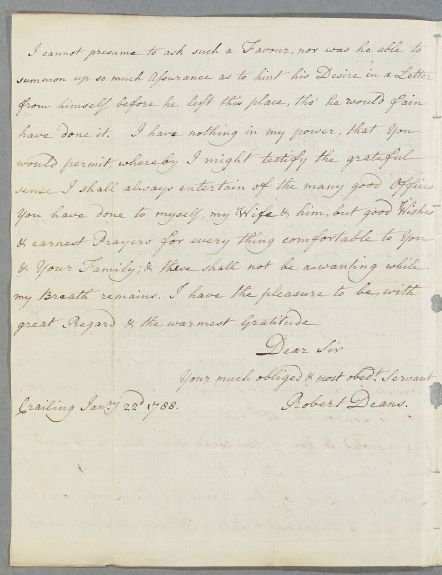 I cannot presume to ask such a Favour, nor was he able to
summon up so much Assurance as to hint his Desire in a Letter
from himself before he left this place, tho' he would fain
have done it. I have nothing in my power, that You
would permit whereby I might testify the grateful
sense I shall always entertain of the many good Offices
You have done to myself, my Wife & him, but good Wishes
& earnest Prayers for every thing comfortable to You
& Your Family; & these shall not be awanting while
my Breath remains. I have the pleasure to be with
great Regard & the warmest Gratitude
Dear Sir
Your much obliged & most obedt. Servant
Crailing Janry 22d 1788. Robert Deans.